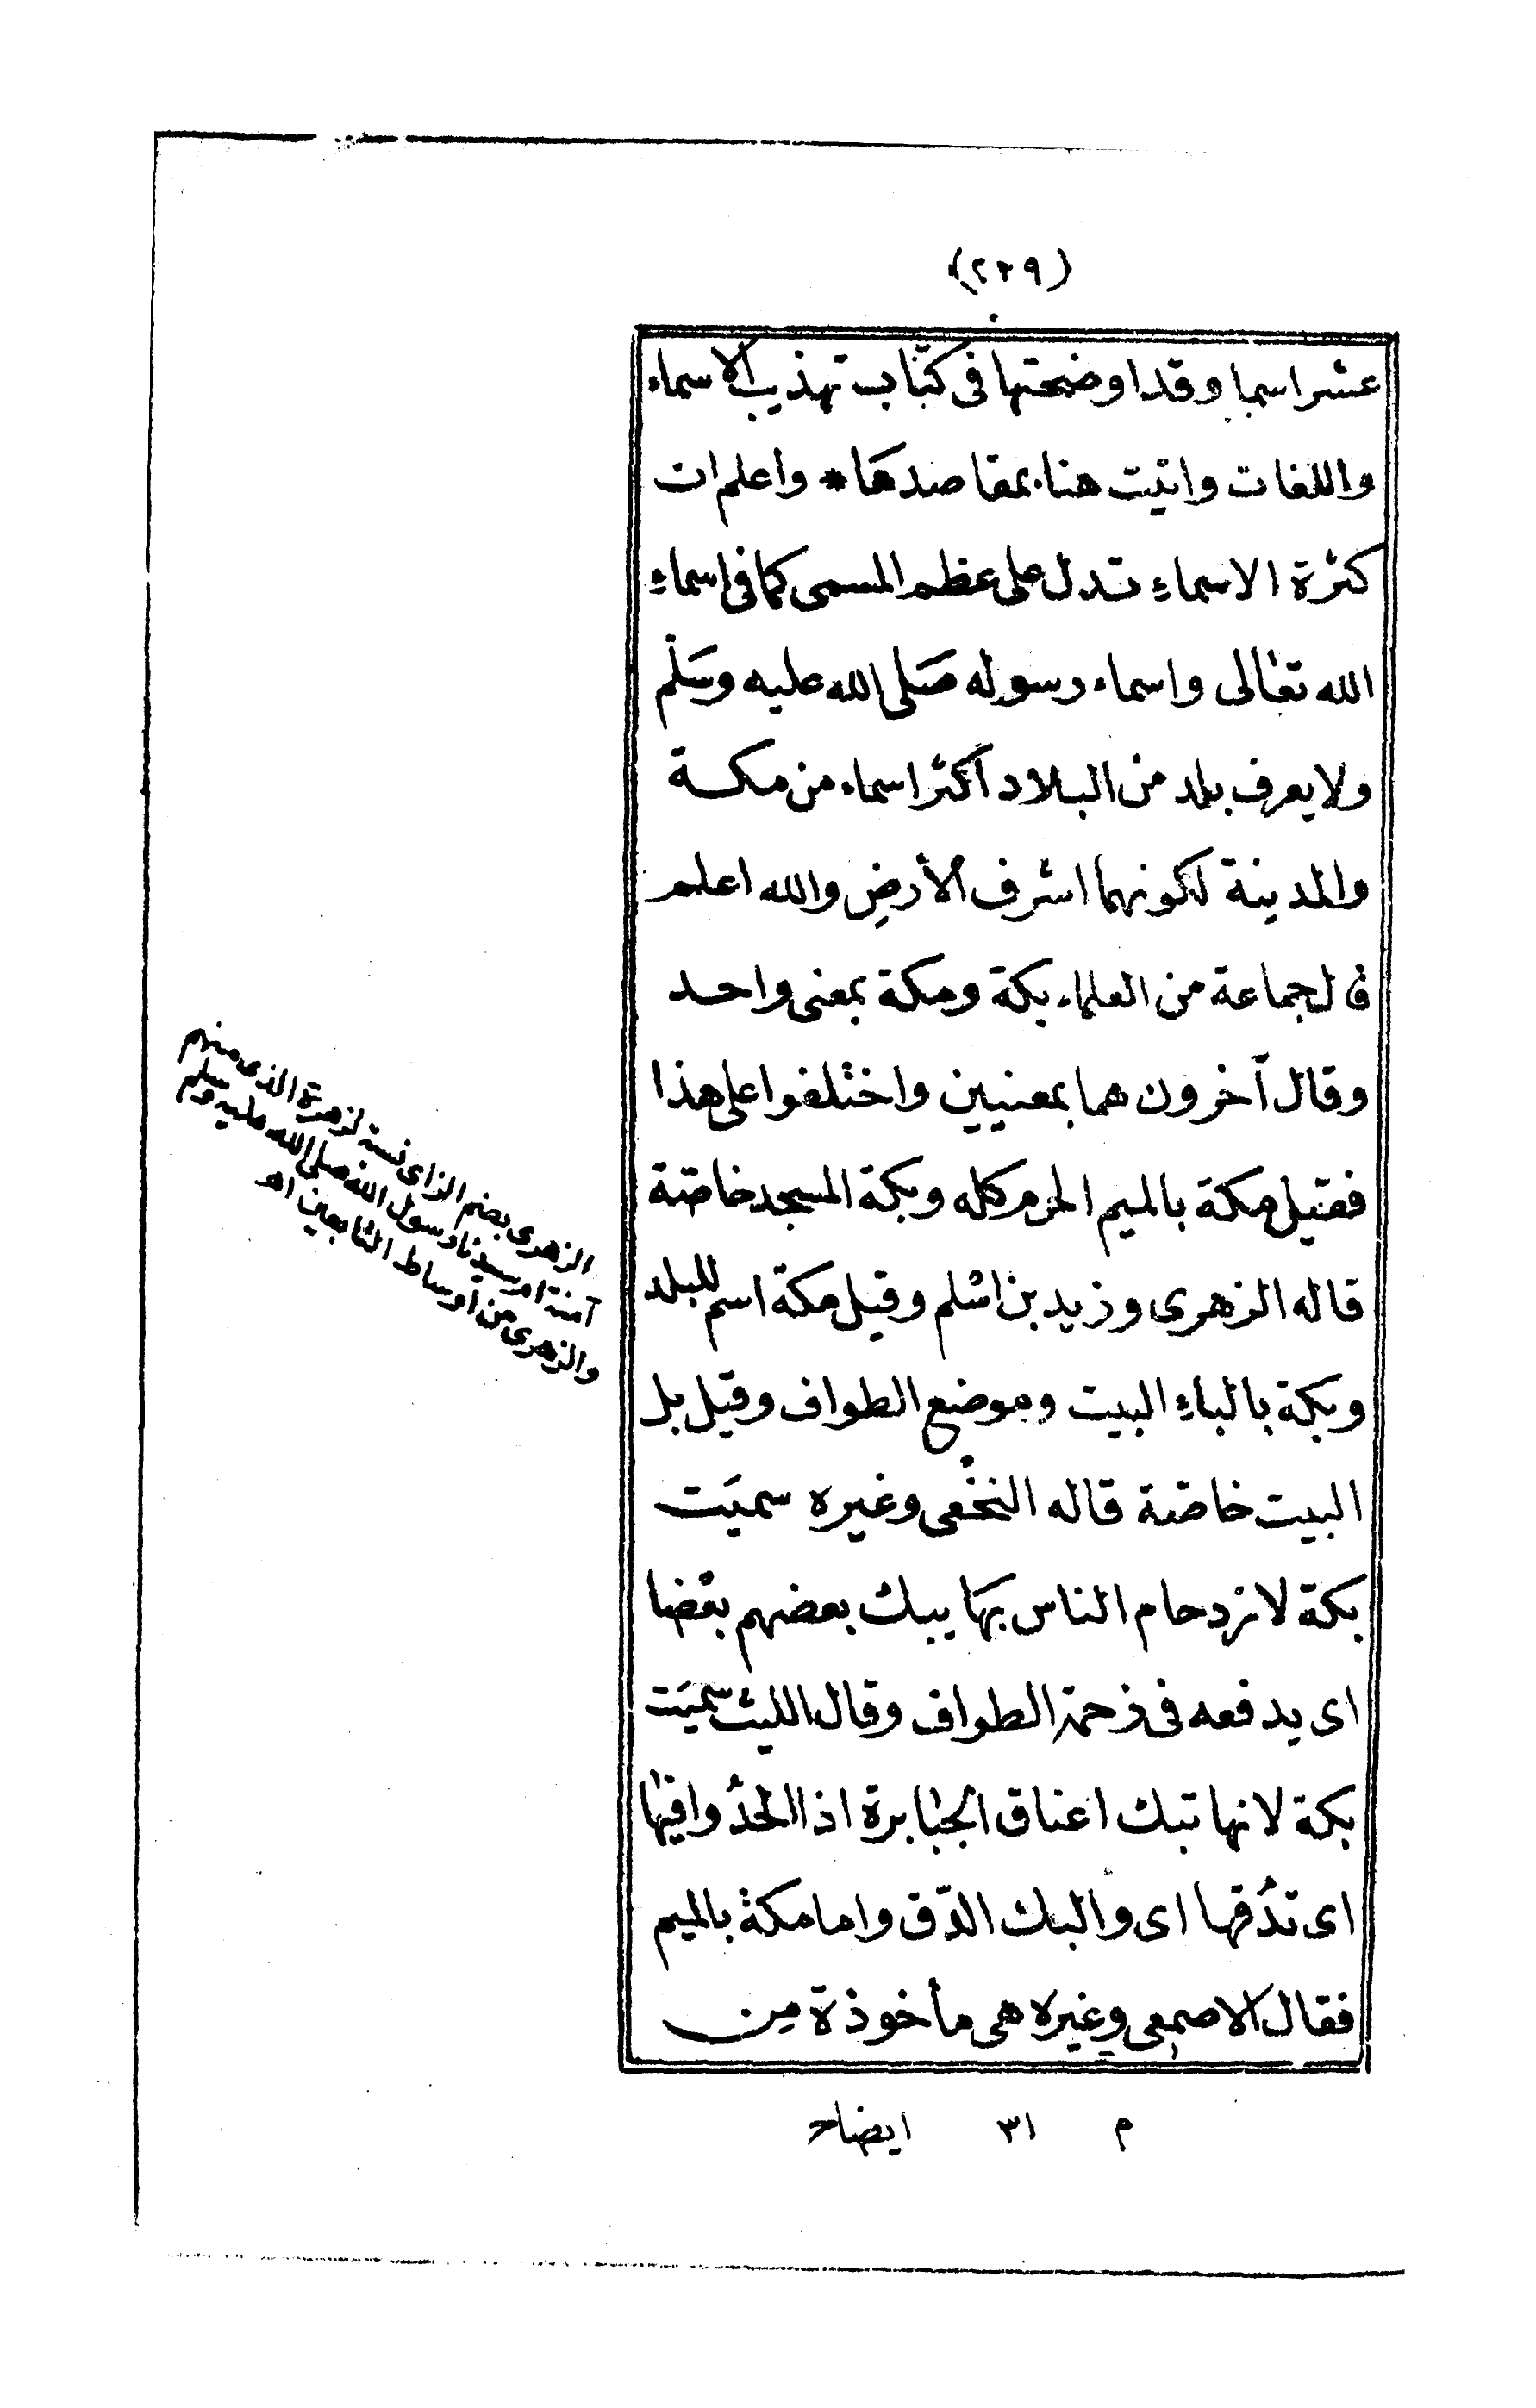 (٢٢٩)
عشر اسما وقد اوضحتها فى كتاب تهذيب الاسماء
واللغات واتيت هنا بمقاصدها * واعلم ان
كثرة الاسماء تدل على عظم المسمى كما فى اسماء
الله تعالى واسماء رسوله صَلى الله عليه وسَلم
ولا يعرف بلد من البلاد أكثر اسماء من مكة
والمدينة لكونهما اشرف الأرض والله اعلم
قال جماعة من العلماء بكة ومكة بمعنى واحد
وقال آخرون هما بمعنيين واختلفوا على هذا
فقيل مكة بالميم الحرم كله وبكة المسجد خاصّة
قاله الزهرى وزيد بن اسْلم وقيل مكة اسم للبلد
وبكة بالباء البيت وموضع الطواف وقيل بل
البيت خاصّة قاله النخعى وغيره سميَت
بكة لازدحام الناس بهَا يبك بعضهم بعْضا
اى يدفعه فى زحمة الطواف وقال الليث سميَت
بكة لانها تبك اعناق الجبابرة اذا الحدُوا فيها
اى تدُقها اى والبك الدّق واما مكة بالميم
فقال الاصمعى وغيره هى مأخوذة مِن
الزهرى بضم الزاى نسبة لزهرة الذى منهم
آمنة ام سيدنا رسول الله صلى الله عليه وسلم
والزهرى من اوساط التابعين اهـ
م ٣١ ايضاح